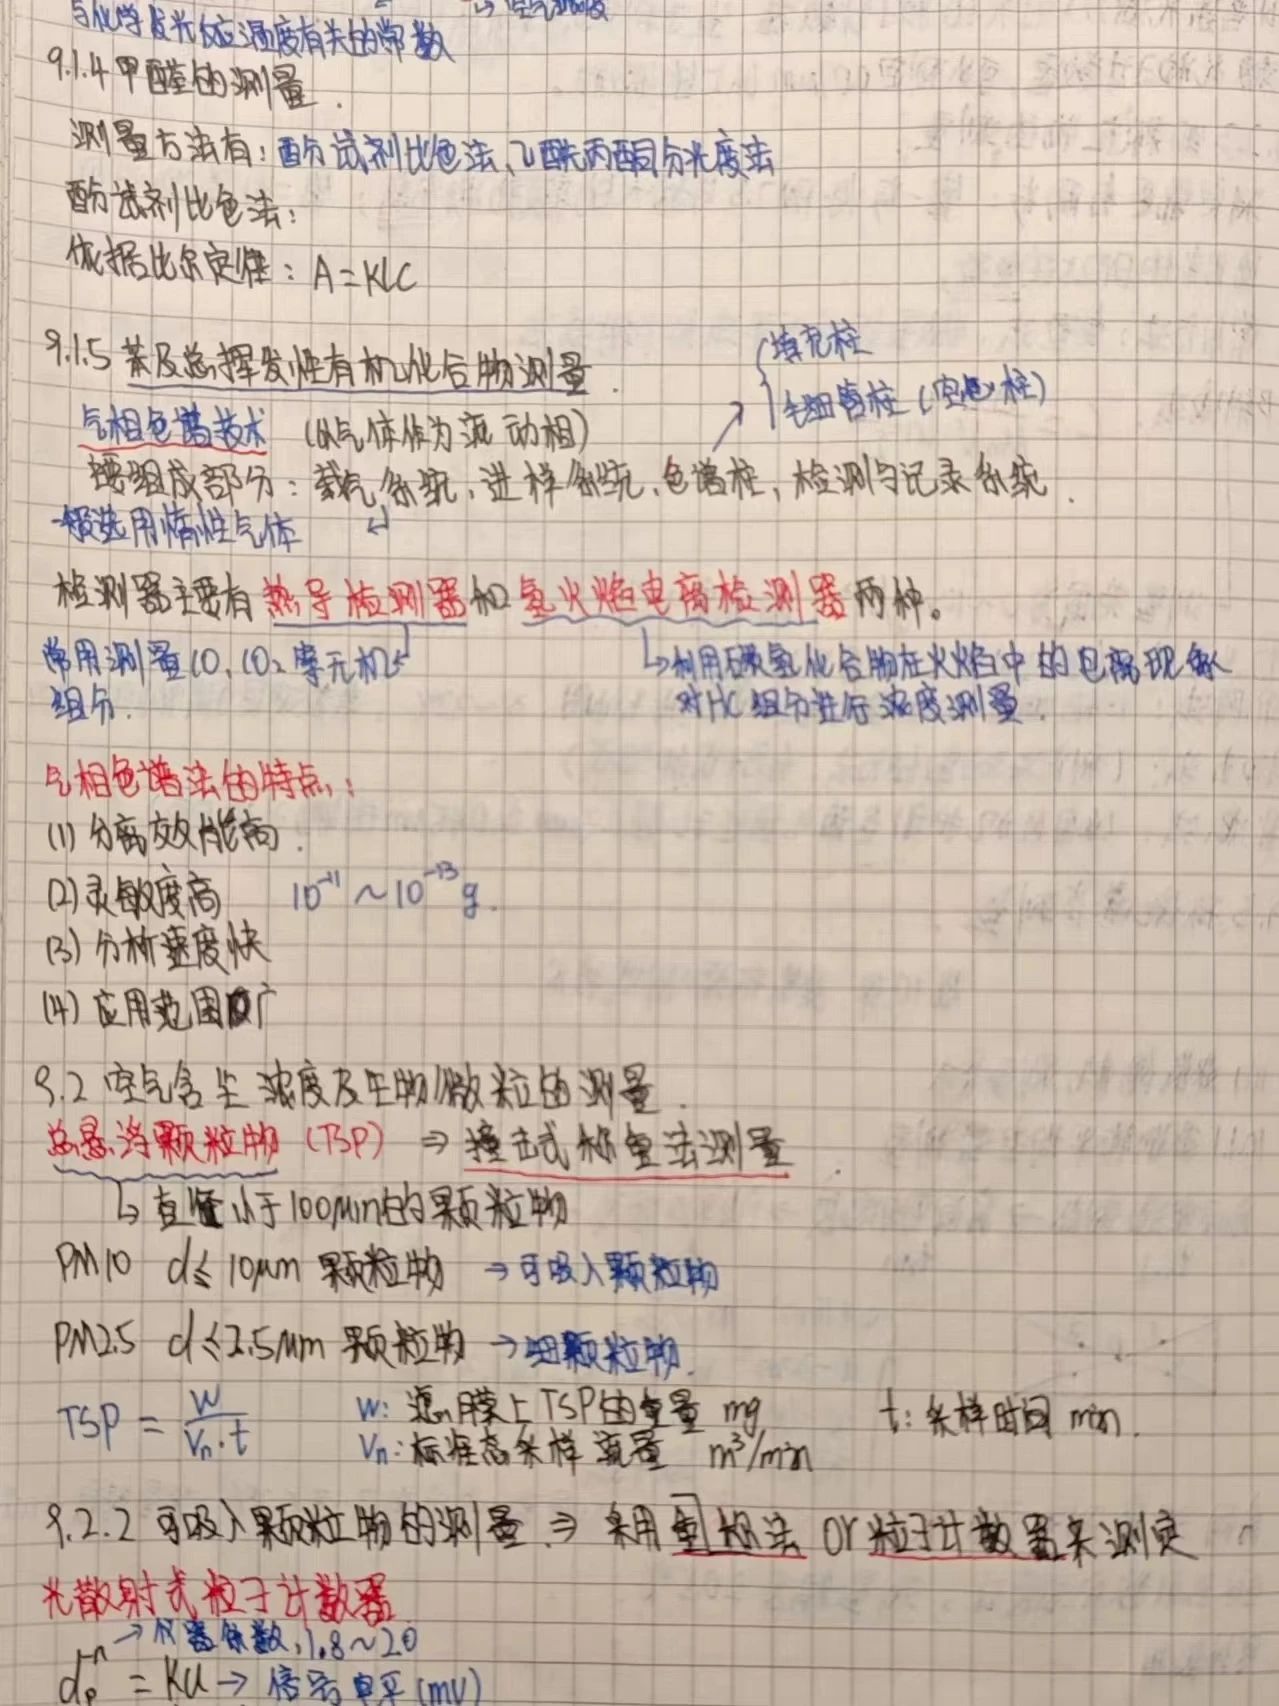 与化学发光反应温度有关的常数
9.1.4 甲醛的测量.
测量方法有: 酚试剂比色法、乙酰丙酮分光度法
酚试剂比色法:
依据比尔定律: A=KLC
9.1.5 苯及总挥发性有机化合物测量.
填充柱
毛细管柱(空心柱)
气相色谱技术 (以气体作为流动相)
主要组成部分: 载气系统、进样系统、色谱柱、检测与记录系统.
一般选用惰性气体
检测器主要有热导检测器和氢火焰电离检测器两种。
常用测量CO、CO₂等无机
组分.
利用碳氢化合物在火焰中的电离现象
对HC组分进行浓度测量.
气相色谱法的特点:
(1) 分离效能高.
(2) 灵敏度高 10⁻¹¹~10⁻¹³g.
(3) 分析速度快
(4) 应用范围广
9.2 空气含尘浓度及生物微粒的测量.
总悬浮颗粒物 (TSP) ⇒ 撞击式称重法测量.
↳ 直径小于100μm的颗粒物
PM10 d≤10μm 颗粒物 →可吸入颗粒物
PM2.5 d≤2.5μm 颗粒物 →细颗粒物.
TSP = W/(Vn·t) W: 滤膜上TSP的重量 mg t: 采样时间 min.
Vn: 标准态采样流量 m³/min
9.2.2 可吸入颗粒物的测量. ⇒ 采用重量法 or 粒子计数器来测定
光散射式粒子计数器
→仪器系数, 1.8~2.0
dₚⁿ = KU → 信号电平(mV)